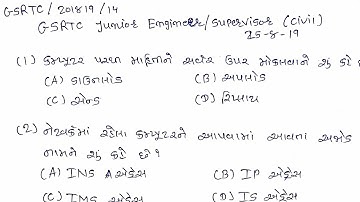 GSRTC / 201819 / 14
GSRTC Junior Engineer/Supervisor (Civil)
25-8-19
(1) કમ્પ્યુટર પરના માહિતીને સર્વર ઉપર મોકલવાને શું કહે
(A) ડાઉનલોડ (B) અપલોડ
(C) સેન્ડ (D) રિપ્લાય
(2) નેટવર્કમાં રહેલા કમ્પ્યુટરને આપવામાં આવતા અજોડ
નામને શું કહે છે?
(A) INS એડ્રેસ (B) IP એડ્રેસ
(C) IMS એડ્રેસ (D) IS એડ્રેસ